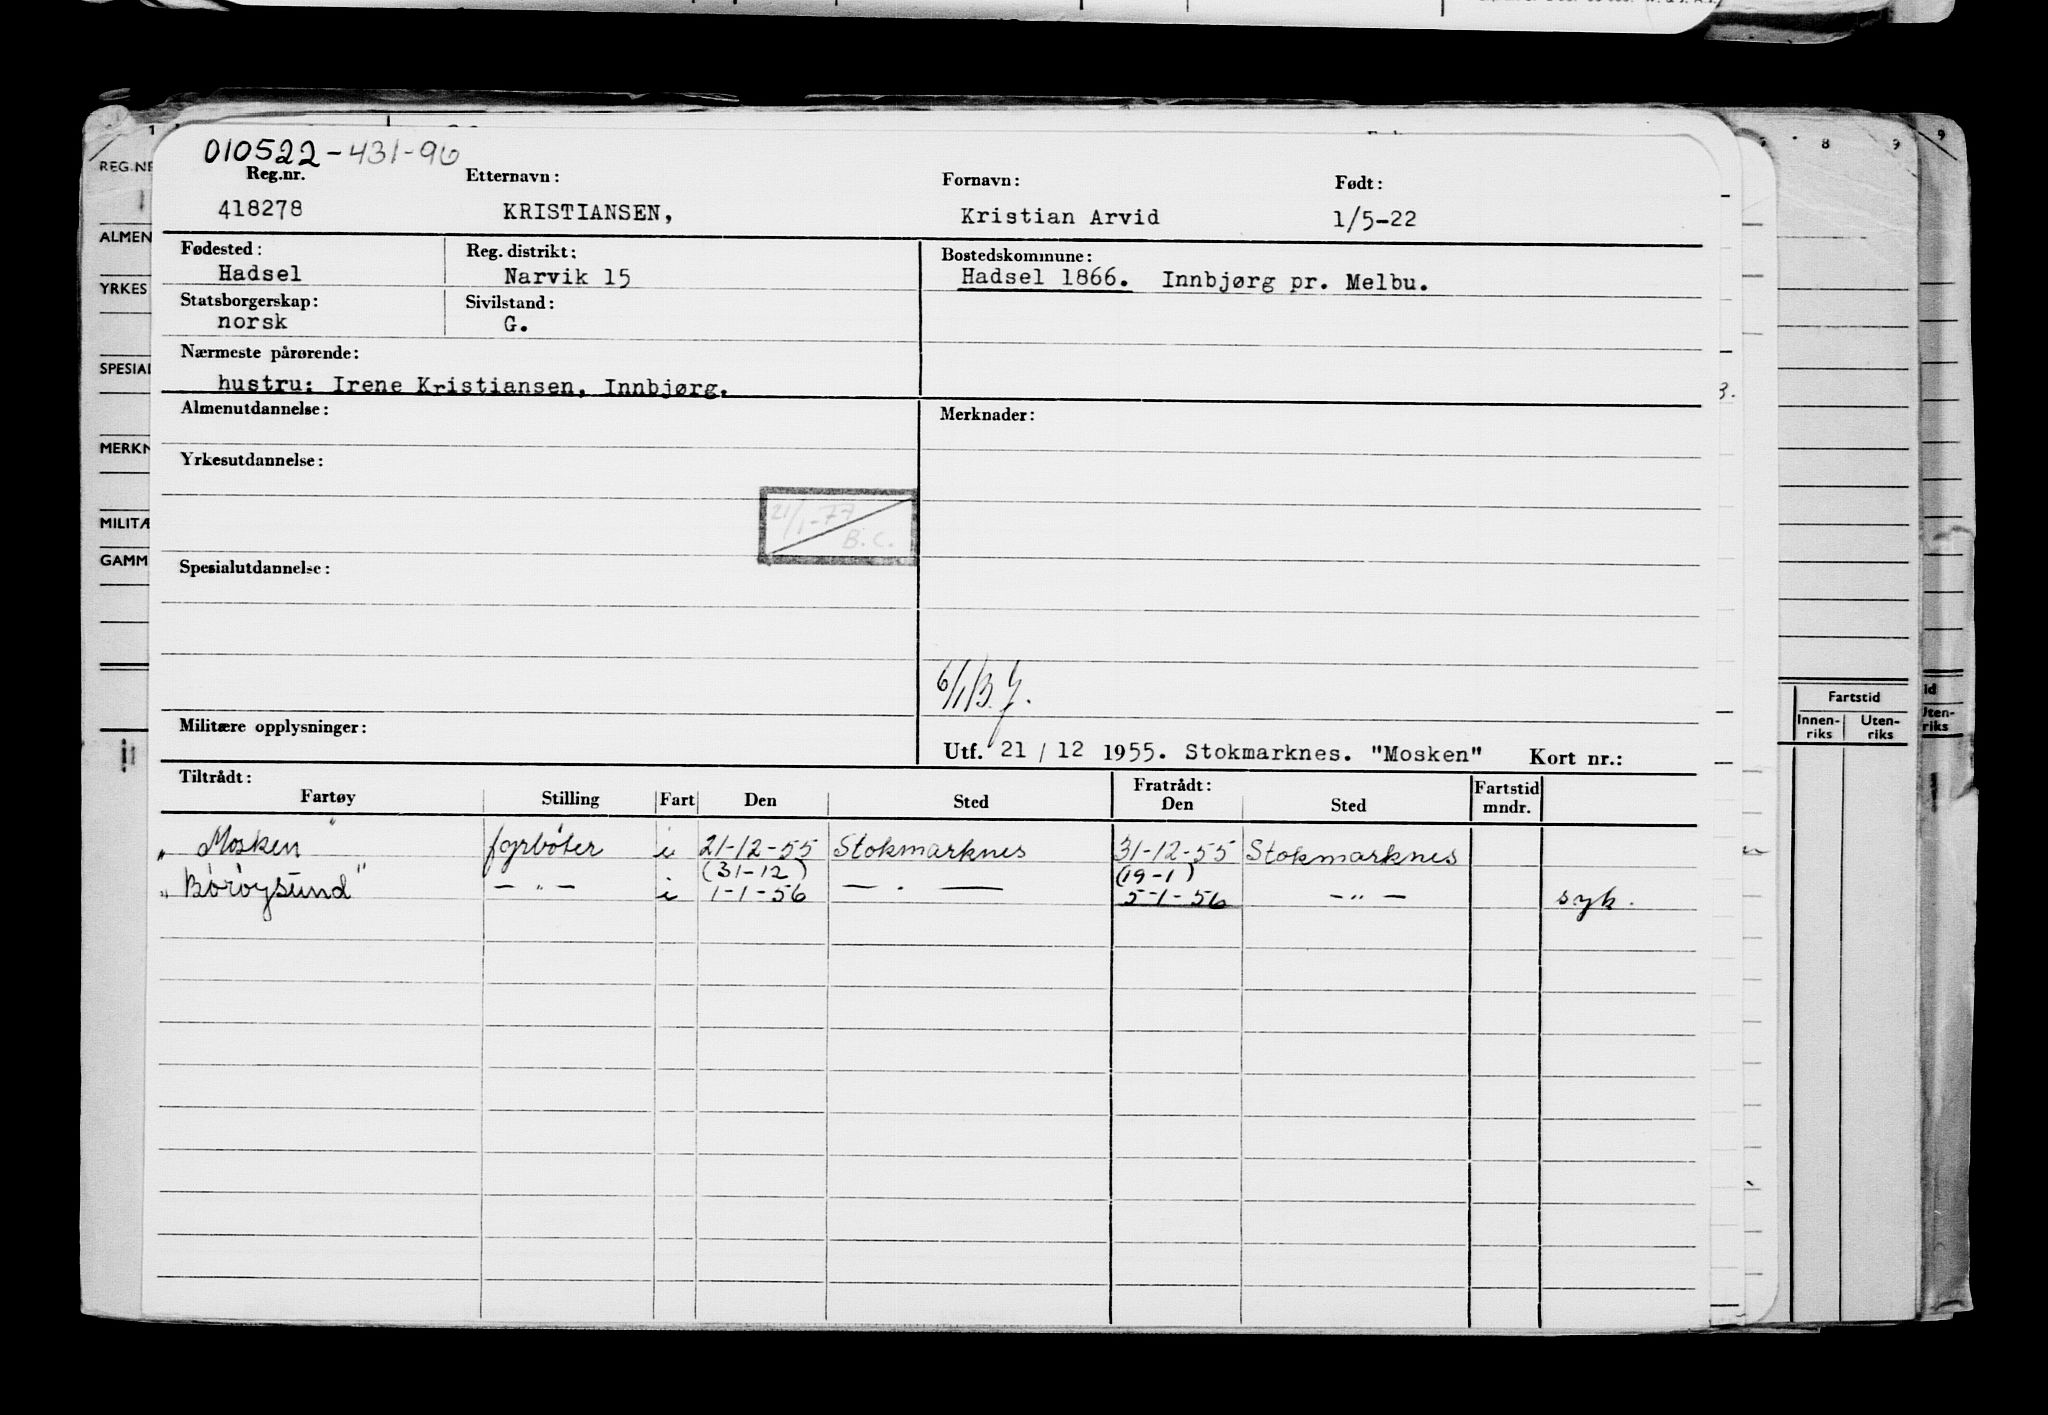 010522-431-96
Reg.nr. Etternavn: Fornavn: Født:
418278 KRISTIANSEN, Kristian Arvid 1/5-22
Fødested: Reg. distrikt: Bostedskommune:
Hadsel Narvik 15 Hadsel 1866. Innbjørg pr. Melbu.
Statsborgerskap: Sivilstand:
norsk G.
Nærmeste pårørende:
hustru: Irene Kristiansen, Innbjørg.
Almenutdannelse: Merknader:
Yrkesutdannelse:
21/1-77
B.C.
Spesialutdannelse:
Militære opplysninger:
Utf. 21 / 12 1955. Stokmarknes. "Mosken" Kort nr.:
Tiltrådt: Fratrådt: Fartstid
Fartøy Stilling Fart Den Sted Den Sted mndr.
"Mosken" fyrbøter i 21-12-55 Stokmarknes 31-12-55 Stokmarknes
(31-12) (19-1)
"Børøysund" -"- i 1-1-56 -"- 5-1-56 -"- syk.
REG.NR
ALMEN
YRKES
SPESIAL
MERKN
MILITÆ
GAMM
8 9
9
Fartstid
Innen-riks Uten-riks
Uten-riks